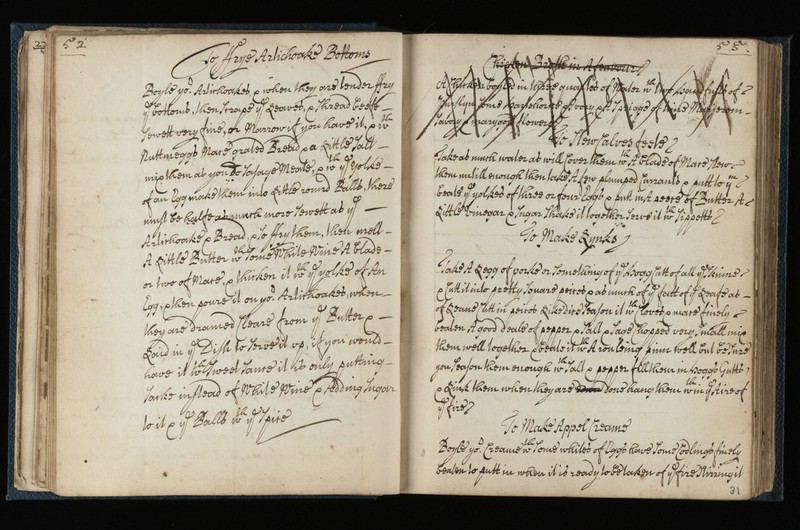 52
To ffrye Artichoake Bottoms
Boyle yo.r Artichoakes & when they are tender ffry
ye bottoms, then scrape ye Leaves, & shread beefe
Sewett very fine, or Marrow if you have it, & wth
Nuttmeggs Mace grated Bread & a Little Salt
mix them as you do Sasage Meate, & wth ye yolke
of an Egg make them into Little round Balls, there
must be halfe as much more Sewett as ye
Artichoake & Bread, & so ffry them, then melt
A Little Butter wth some White Wine A blade
or two of Mace, & thicken it wth ye yolke of An
Egg, & then poure it on yo.r Artichoakes, when
they are drained Cleare from ye Butter &
Laid in ye Dish to Serve it up, if you would
have it wth Sweet Sauce it is only putting
Sacke instead of White Wine & Adding Sugar
to it & ye Balls wth ye Spice
55
Chicken Broth in A feavour
A Chicken boyled in three quartes of Water wth two handfulls of
Purslyn some hartshorne &
Savory marygold flowers
To Stew Calves feete
Take as much water as will Cover them wth A blade of Mace, Stew
them untill enough then take A few plumped Currants & putt to ym
beate ye yolkes of three or four Eggs & putt in A peece of Butter A
Little vinegar & Sugar Shake it together Serve it wth Sippetts
To Make Lynks
Take A Legg of porke or Something of ye Hogg Cutt of all ye Skinns
& Cutt it into pretty Square peices & as much of ye fatt of ye Leafe as
of Leane Cutt in peices Likewise Season it wth Cloves & mace finely
beaten A good deale of pepper & Salt & Sage chopped very Small mix
them well together & beate it wth A rouling pinn well but be Sure
you Season them enough wth Salt & pepper fill them in Hoggs Gutts
& Link them when they are done hang them wthin ye Aire of
ye fire
To Make Appel Creame
Boyle yo.r Creame wth Some whites of Eggs have Some Codlings finely
beaten to putt in when it is ready to be taken of ye fire Stirring it
31